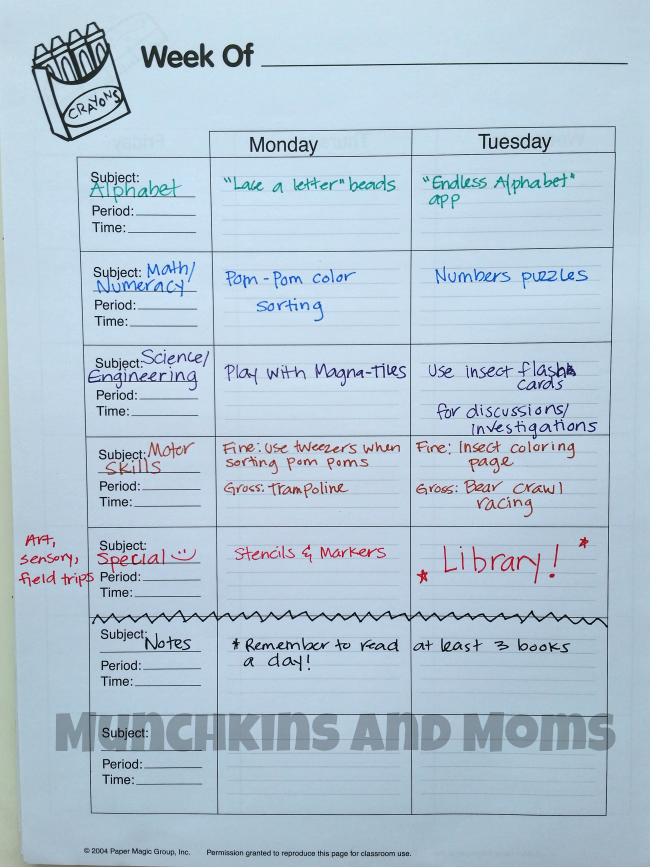 CRAYONS
Week Of
Monday Tuesday
Subject:
Alphabet
Period:
Time:
"Lace a letter" beads
"Endless Alphabet"
app
Subject: Math/
Numeracy
Period:
Time:
Pom-Pom color
sorting
Numbers puzzles
Subject: Science/
Engineering
Period:
Time:
Play with Magna-Tiles
Use insect flash
cards
for discussions/
investigations
Subject: Motor
Skills
Period:
Time:
Fine: Use tweezers when
sorting pom poms
Gross: Trampoline
Fine: Insect coloring
page
Gross: Bear crawl
racing
Art,
sensory,
field trips
Subject:
Special
Period:
Time:
Stencils & Markers
Library!
Subject:
Notes
Period:
Time:
* Remember to read at least 3 books
a day!
Munchkins and Moms
Subject:
Period:
Time:
© 2004 Paper Magic Group, Inc. Permission granted to reproduce this page for classroom use.